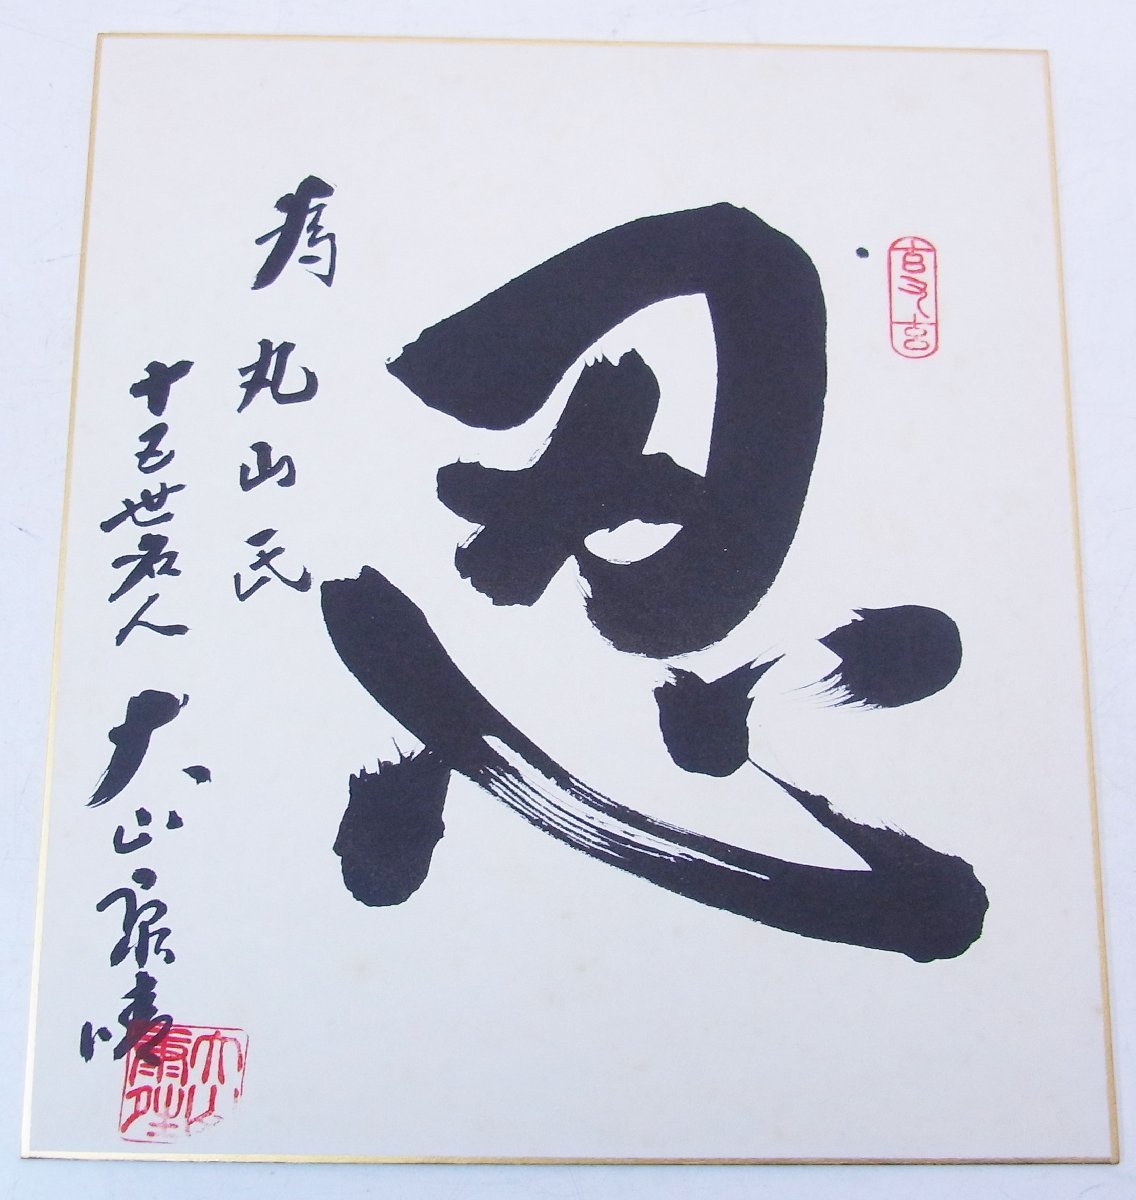 忍
為 丸山氏
十五世名人 大山康晴
大山康晴